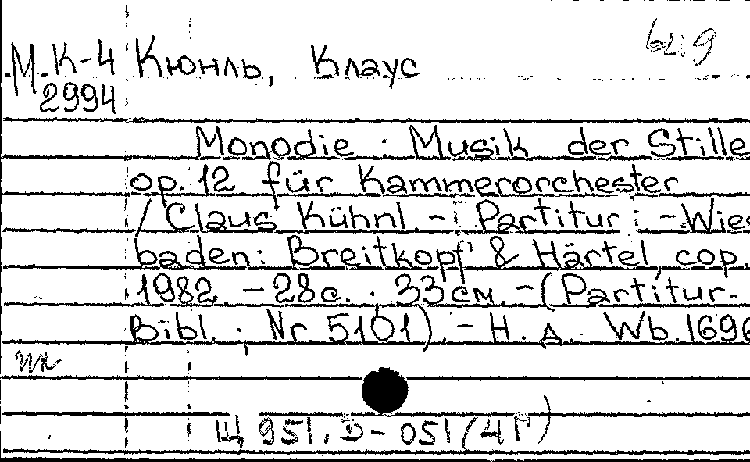 М.К-4 Кюнль, Клаус
2994
Monodie : Musik der Stille
op. 12 für Kammerorchester
/ Claus Kühnl. - Partitur. - Wies
baden: Breitkopf & Härtel, cop.
1982. - 28с. ; 33см. - (Partitur-
Bibl. ; Nr 5101). - Н. д. Wb. 1696
Щ 951. D - 051 (4Г)